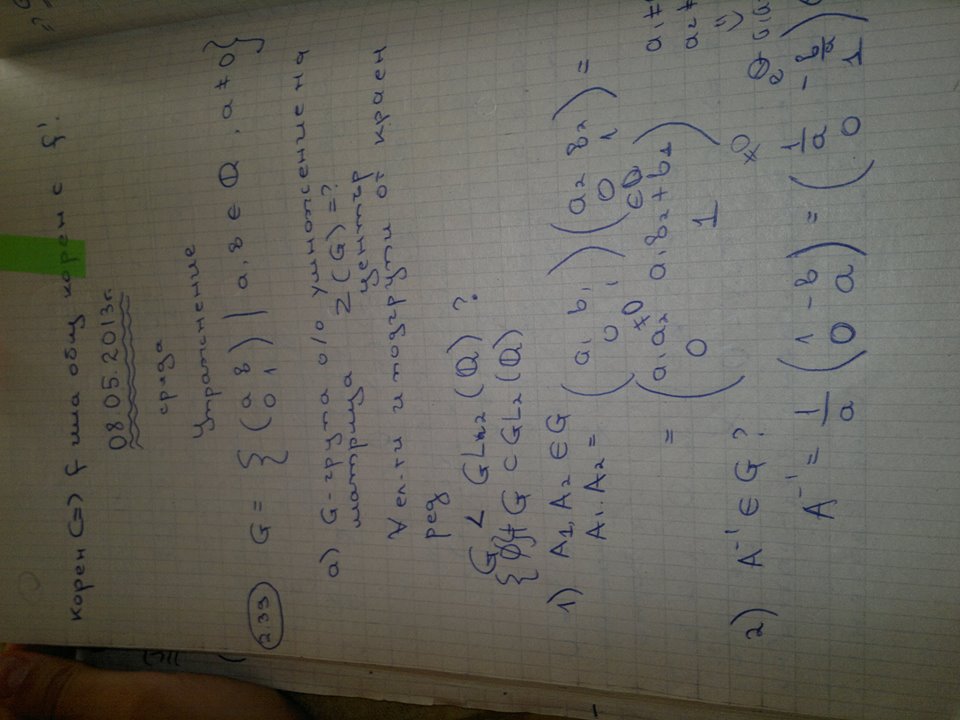 корен <=> f има общ корен с f'.
08.05.2013г.
сряда
Упражнение
2.39 G = { ( a b
0 1 ) | a, b ∈ Q, a ≠ 0 }
a) G - група о/о умножение на
матрица Z(G) = ?
център
∀ ел-ти и подгрупи от краен
ред
G < GL₂(Q) ?
{ϕ} ≠ G ⊂ GL₂(Q)
1) A₁, A₂ ∈ G
A₁.A₂ = ( a₁ b₁
0 1 ) ( a₂ b₂
0 1 ) =
= ( a₁a₂ a₁b₂+b₁
0 1 )
≠0 ∈Q
≠0
a₁≠
a₂≠
2) A⁻¹ ∈ G ?
A⁻¹ = 1/a ( 1 -b
0 a ) = ( 1/a -b/a
0 1 )